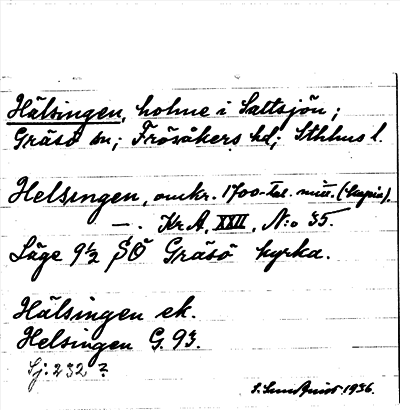 Hälsingen, holme i Saltsjön;
Gräsö sn; Frösåkers hd; Sthlms l.
Helsingen, omkr. 1700-tal. mitt. (kopia).
—. Kr A, XXII, N:o 35.
Läge 9½ SÖ Gräsö kyrka.
Hälsingen ek.
Helsingen G. 93.
Sj: 232 ?
1936.